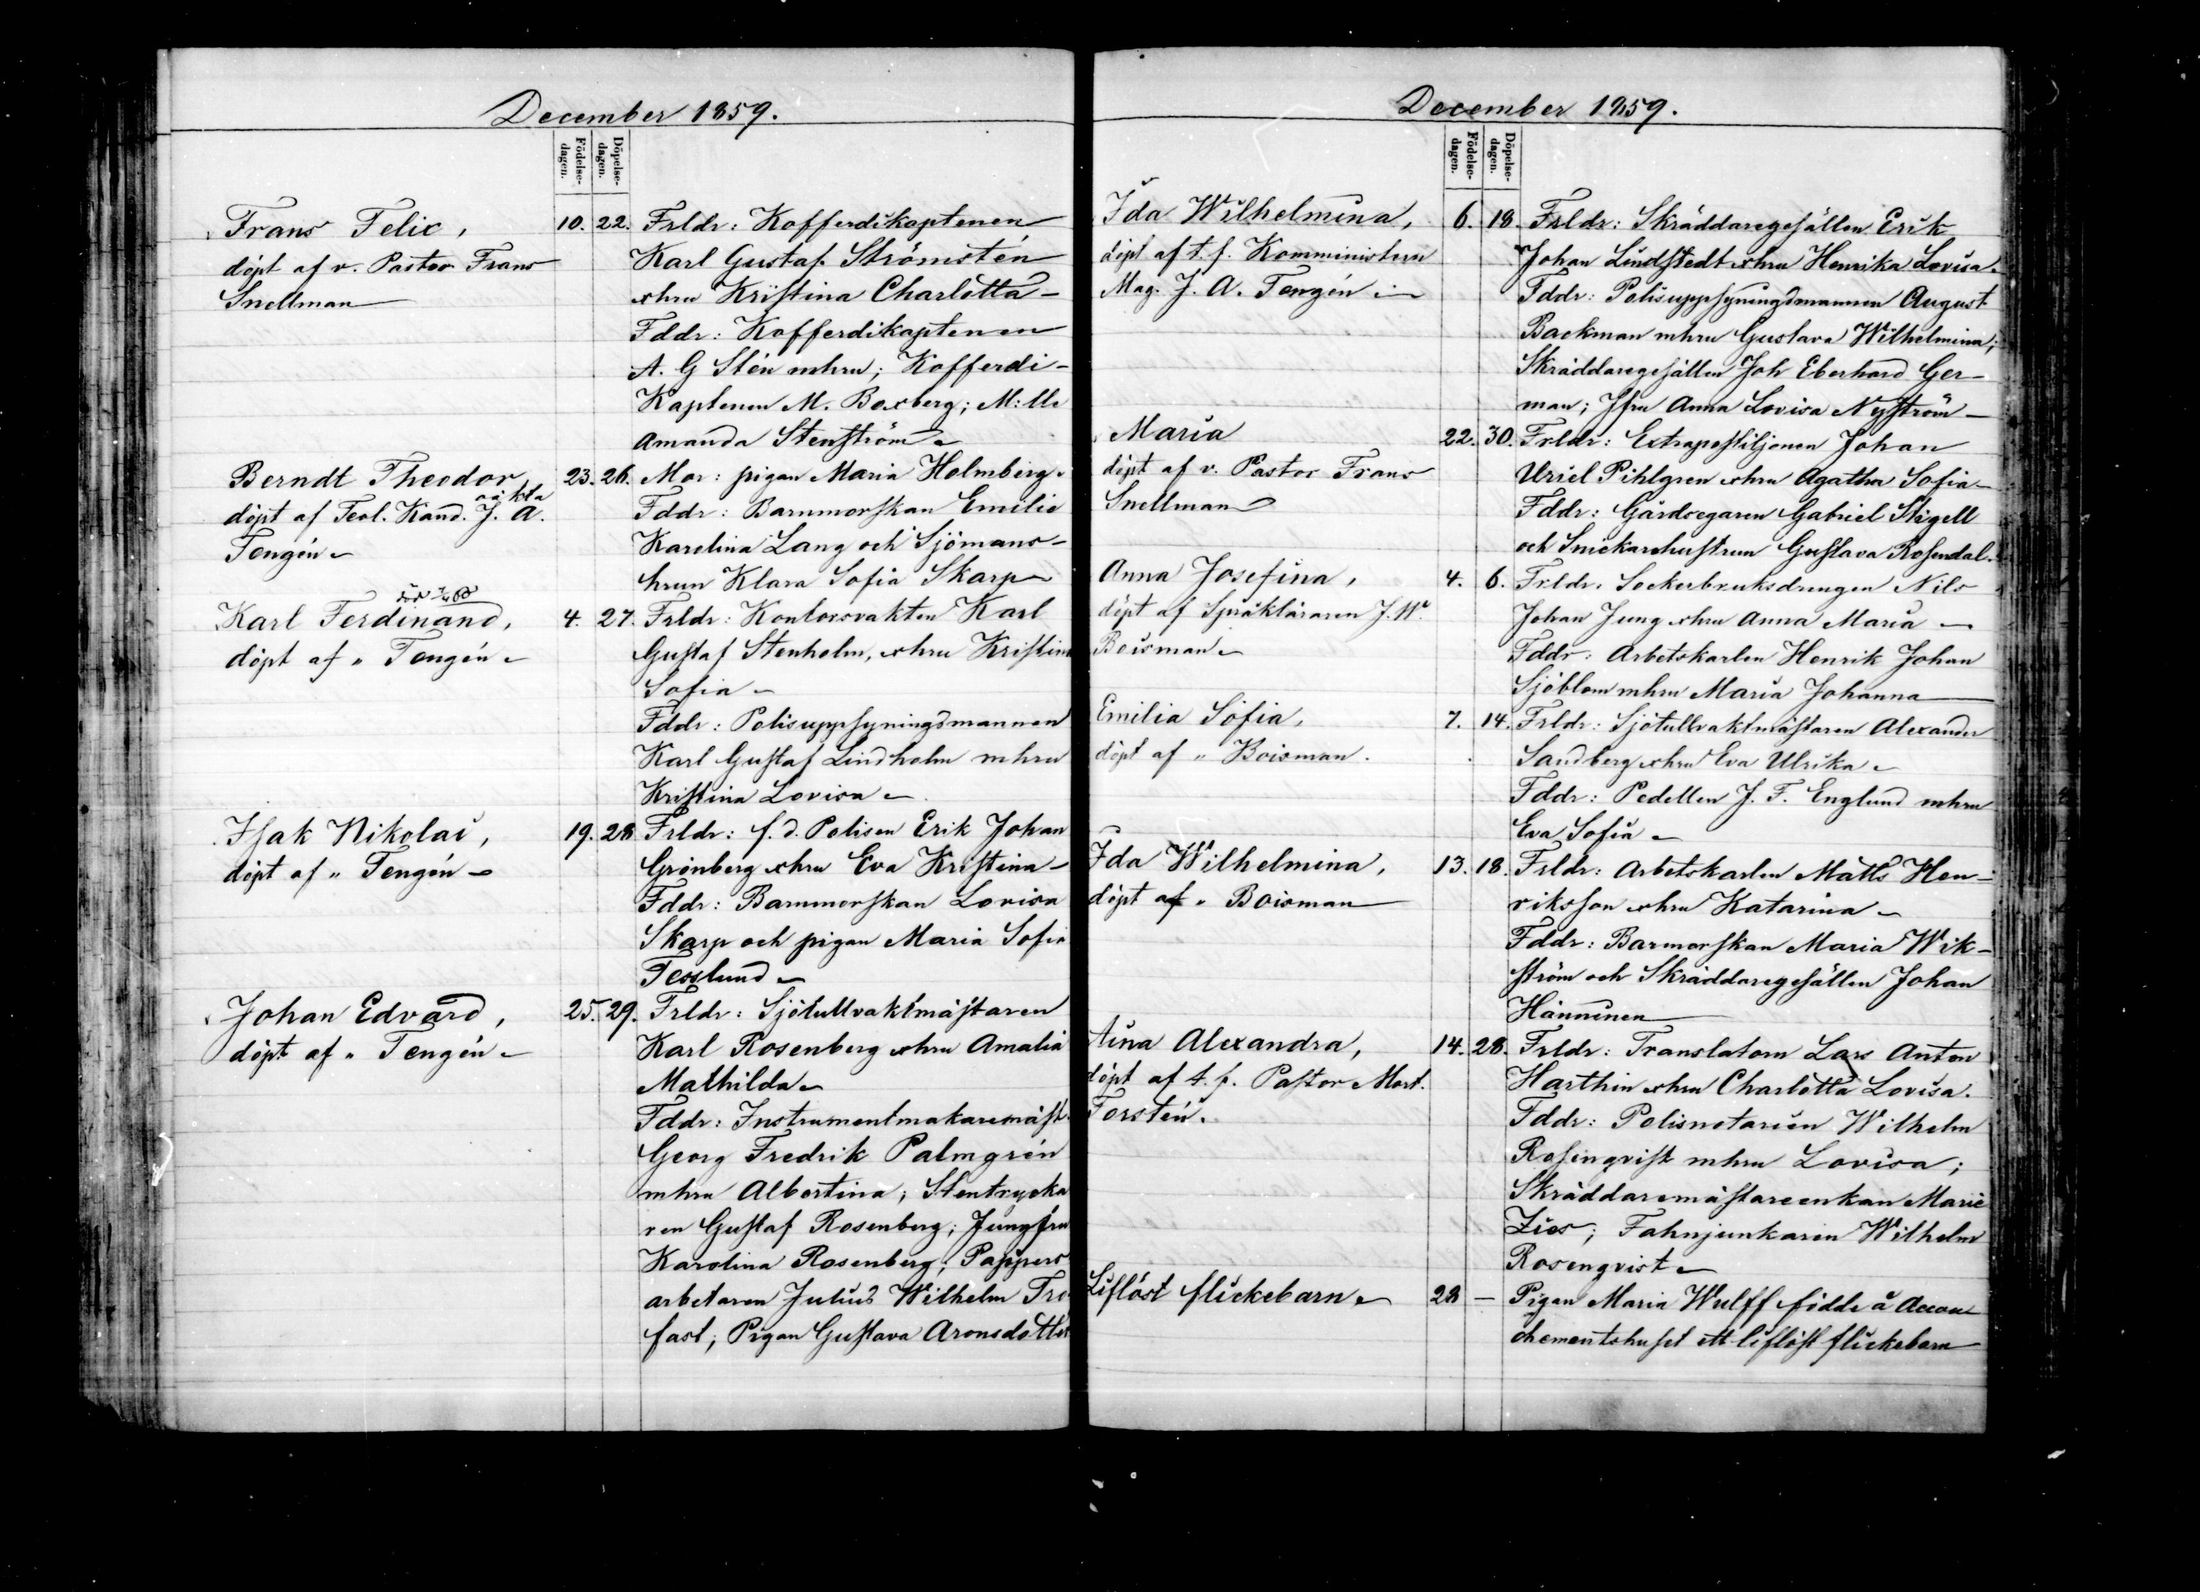 December 1859.
Födelse-
dagen.
Döpelse-
dagen.
Frans Felix,
döpt af v. Pastor Frans
Snellman
10. 22.
Frldr: Kofferdikaptenen
Karl Gustaf Strömstén
o hru Kristina Charlotta
Fddr: Kofferdikaptenen
A. G Stén mhru; Kofferdi-
Kaptenen M. Boxberg; M:lle
Amanda Stenström
Berndt Theodor
oäkta
döpt af Teol. Kand. J. A.
Tengén
23. 26.
Mor: pigan Maria Holmberg
Fddr: Barnmorskan Emilie
Karolina Lang och Sjömans-
hrun Klara Sofia Skarp
Karl Ferdinand,
döpt af " Tengén
4. 27.
Frldr: Kontorsvakten Karl
Gustaf Stenholm, o hru Kristina
Sofia
Fddr: Polisuppsyningsmannen
Karl Gustaf Lindholm mhru
Kristina Lovisa
Isak Nikolai,
döpt af " Tengén
19. 28
Frldr: f. d. Polisen Erik Johan
Grönberg o hru Eva Kristina
Fddr: Barnmorskan Lovisa
Skarp och pigan Maria Sofia
Tesslund
Johan Edvard,
döpt af " Tengén
25. 29.
Frldr: Sjötullvaktmästaren
Karl Rosenberg o hru Amalia
Mathilda
Fddr: Instrumentmakaremäst.
Georg Fredrik Palmgrén
mhru Albertina; Stentrycka
ren Gustaf Rosenberg; Jungfru
Karolina Rosenberg; Pappers
arbetaren Julius Wilhelm Tro
fast; Pigan Gustava Aronsdotter
December 1859.
Födelse-
dagen.
Döpelse-
dagen.
Ida Wilhelmina,
döpt af t. f. Komministern
Mag. J. A. Tengén
6. 18.
Frldr: Skräddaregesällen Erik
Johan Lindstedt o hru Henrika Lovisa.
Fddr: Polisuppsyningsmannen August
Backman mhru Gustava Wilhelmina;
Skräddaregesällen Joh Eberhard Ger-
man; Jfru Anna Lovisa Nyström
Maria
döpt af v. Pastor Frans
Snellman
22. 30.
Frldr: Extrapostiljonen Johan
Uriel Pihlgren o hru Agatha Sofia
Fddr: Gårdsegaren Gabriel Stigell
och Snickarehustrun Gustava Rosendal.
Anna Josefina,
döpt af Språkläraren J. W.
Boisman
4. 6.
Frldr. Sockerbruksdrengen Nils
Johan Jung o hru Anna Maria
Fddr: Arbetskarlen Henrik Johan
Sjöblom mhru Maria Johanna
Emilia Sofia,
döpt af " Boisman.
7. 14.
Frldr: Sjötullvaktmästaren Alexander
Sandberg o hru Eva Ulrika
Fddr: Pedellen J. F. Englund mhru
Eva Sofia
Ida Wilhelmina,
döpt af " Boisman
13. 18.
Frldr: Arbetskarlen Matts Hen-
riksson o hru Katarina
Fddr: Barmorskan Maria Wik-
ström och Skräddaregesällen Johan
Hänninen
Aina Alexandra,
döpt af t. f. Pastor Mort.
Forstén.
14. 28.
Frldr: Translatorn Lars Anton
Harthin o hru Charlotta Lovisa.
Fddr: Polisnotarien Wilhelm
Rosenqvist mhru Lovisa;
Skräddaremästareenkan Marie
Zies; Fahnjunkaren Wilhelm
Rosenqvist
Liflöst flickebarn
28 —
Pigan Maria Wulff födde å Accou
chementshuset ett liflöst flickebarn